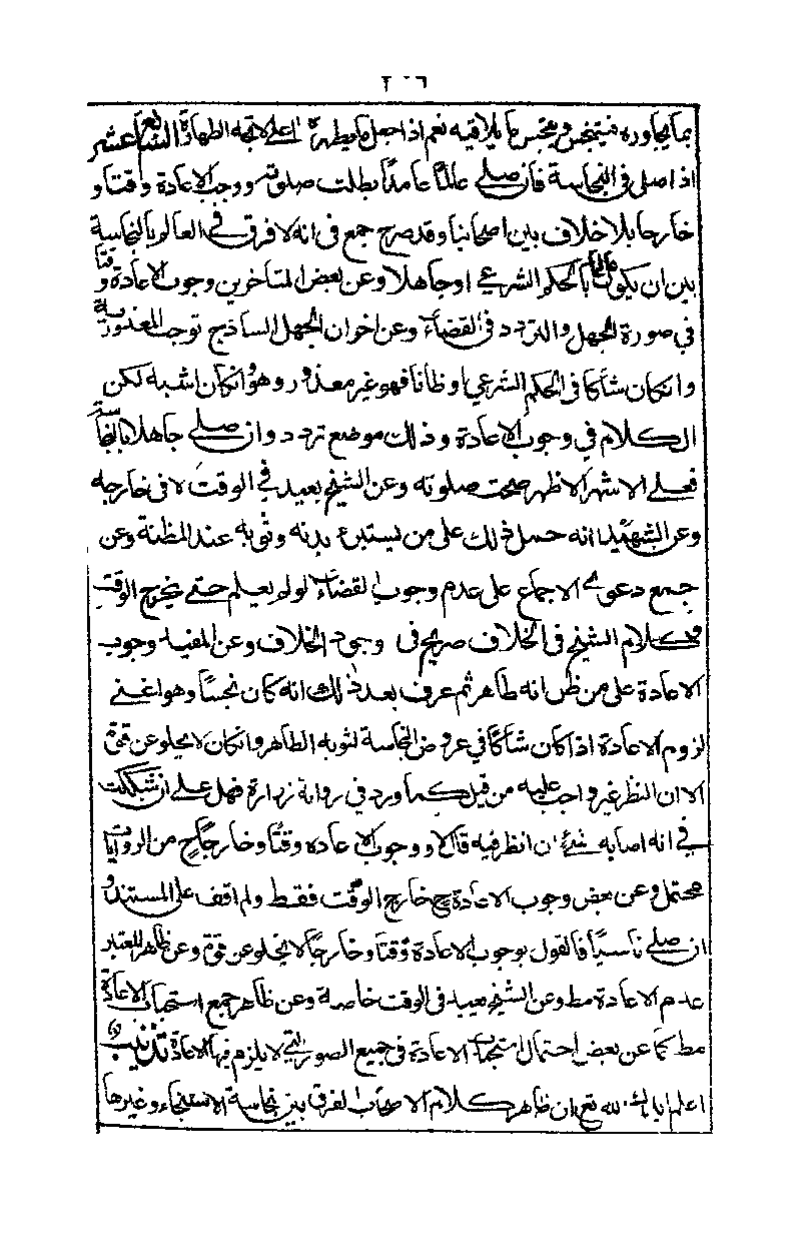 ٢٠٦
بما يجاوره فيتنجس وينجس ما يلاقيه نعم اذا جعل ما يطهره اعلى لاتجه الطهارة السابع عشر
اذا صلى فى النجاسة فان صلى عالمًا عامدًا بطلت صلوته ووجب الاعادة وقتا و
خارجا بلا خلاف بين اصحابنا وقد صرح جمع فى انه لا فرق فى العالم بالنجاسة
بين ان يكون عالما بالحكم الشرعى او جاهلا وعن بعض المتاخرين وجوب الاعادة وقتا
فى صورة الجهل والتردد فى القضاء وعن اخر ان الجهل الساذج توجب المعذورية
وان كان شاكا فى الحكم الشرعى او ظانا فهو غير معذور وهو وان كان اشبه لكن
الكلام فى وجوب الاعادة وذلك موضع تردد وان صلى جاهلا بالنجاسة
فعلى الاشهر الاظهر صحت صلوته وعن الشيخ يعيد فى الوقت لا فى خارجه
وعن الشهيد انه حمل ذلك على من يستبرء بدنه وثوبه عند المظنة وعن
جمع دعوى الاجماع على عدم وجوب القضاء لو لم يعلم حتى يخرج الوقت
كلام الشيخ فى الخلاف صريح فى وجود الخلاف وعن المفيد وجوب
الاعادة على من ظن انه طاهر ثم عرف بعد ذلك انه كان نجسًا وهو اعنى
لزوم الاعادة اذا كان شاكًا فى عروض النجاسة لثوبه الطاهر وان كان لا يخلو عن قوة
الا ان النظر غير واجب عليه من قبل كما ورد فى رواية زرارة فهل على ان شككت
فى انه اصابه شئ ان انظر فيه قال لا ووجوب الاعاده وقتًا وخارجًا من الروايات
محتمل وعن بعض وجوب الاعادة ح خارج الوقت فقط ولم اقف على المستند و
ان صلى ناسيًا فالقول بوجوب الاعادة وقتًا وخارجًا لا يخلو عن قوة وعن ظاهر المعتبر
عدم الاعادة مط وعن الشيخ يعيد فى الوقت خاصة وعن ظاهر جمع استحباب الاعادة
مط كما عن بعض احتمال استحباب الاعادة فى جميع الصور التى لا يلزم فيها الاعادة تذنيب
اعلم ايدك الله تع ان ظاهر كلام الاصحاب الفرق بين نجاسة الاستنجاء وغيرها